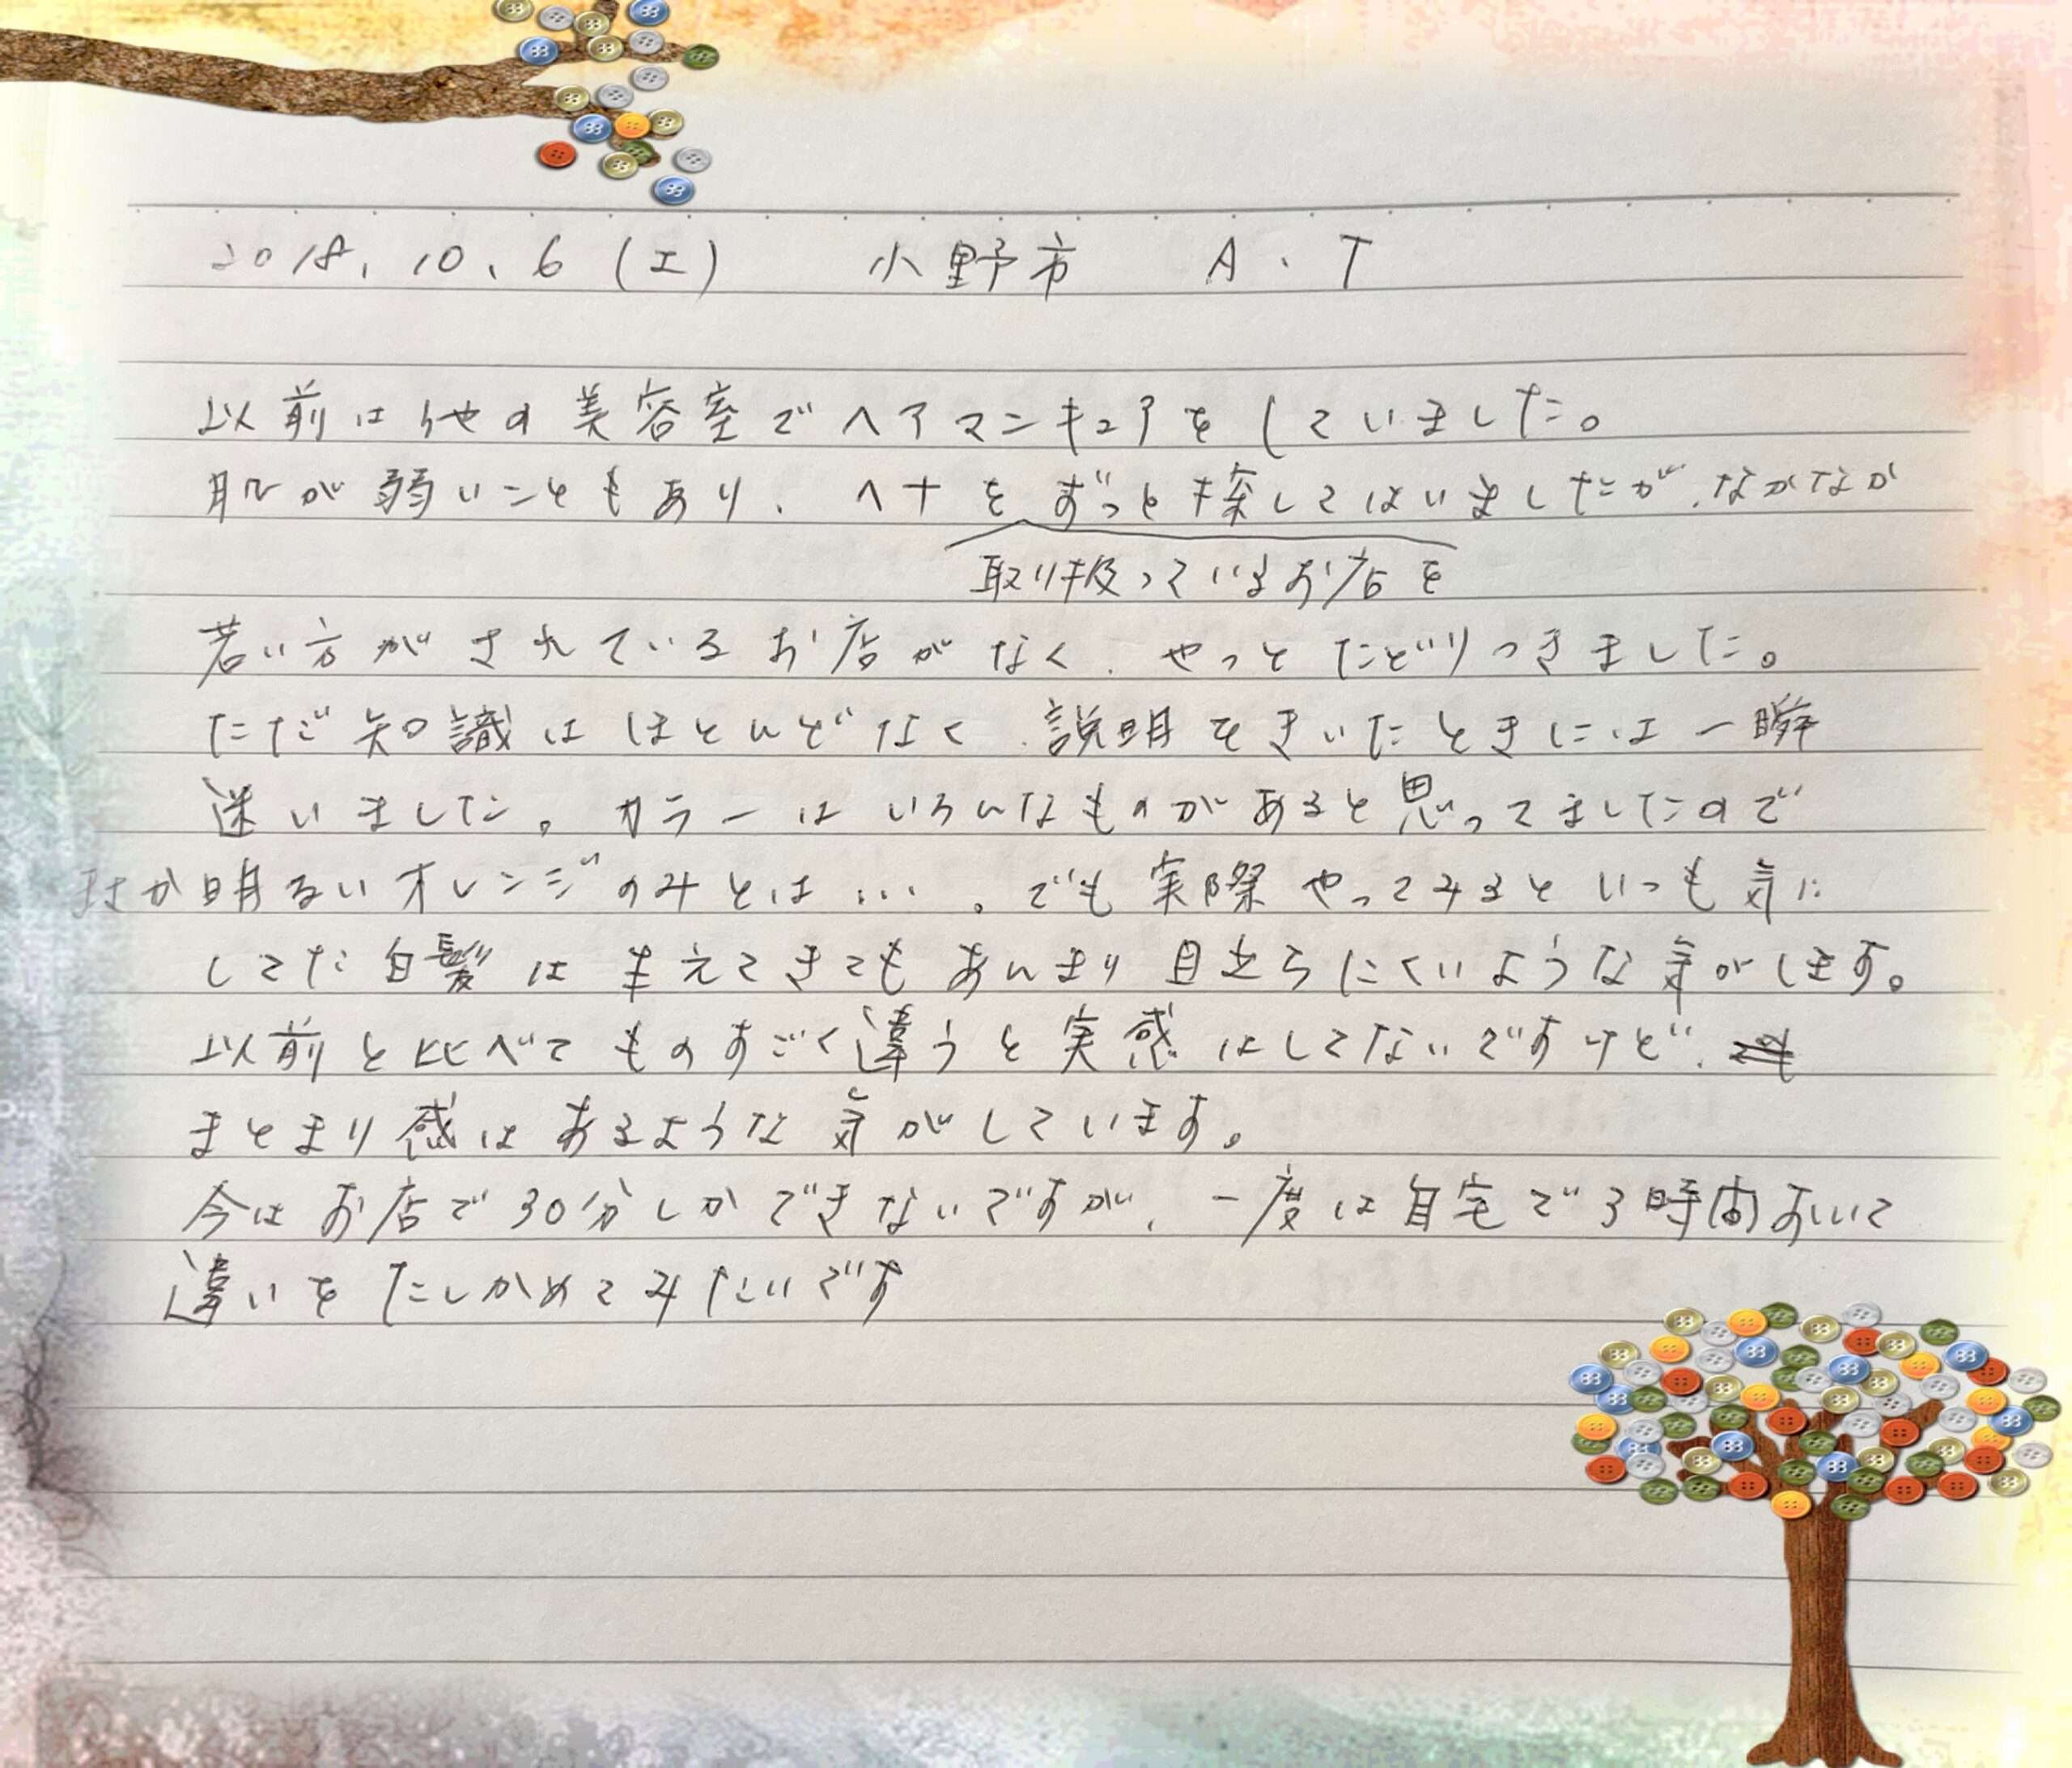 2018、10、6(土) 小野市 A・T
以前は他の美容室でヘアマニキュアをしていました。
肌が弱いこともあり、ヘナをずっと探してはいましたが、なかなか
取り扱っているお店を
若い方がされているお店がなく、やっとたどりつきました。
ただ知識はほとんどなく、説明をきいたときには一瞬
迷いました。カラーはいろんなものがあると思ってましたので
まさか明るいオレンジのみとは…。でも実際やってみるといつも気に
してた白髪は生えてきてもあんまり目立ちにくいような気がします。
以前と比べてものすごく違うと実感はしてないですけど、
まとまり感はあるような気がしています。
今はお店で30分しかできないですが、一度は自宅で3時間おいて
違いをたしかめてみたいです